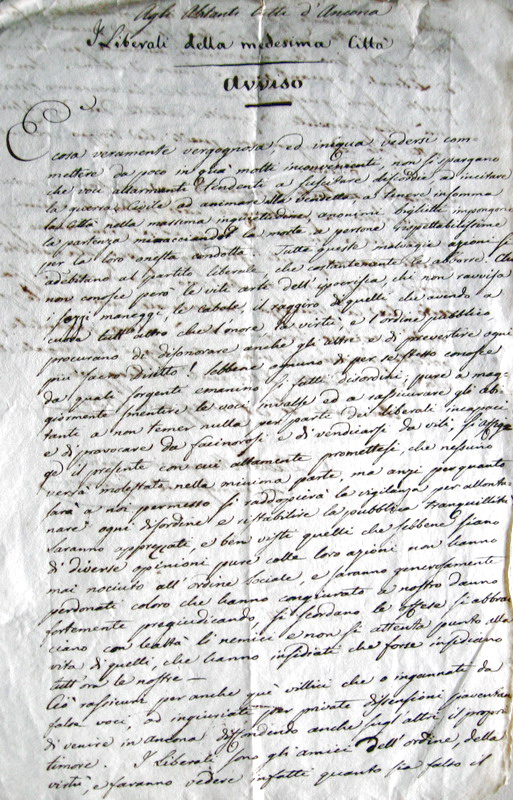 Agli Abitanti della Città d'Ancona
I Liberali della medesima Città
Avviso
È cosa veramente vergognosa, ed iniqua vedersi com-
mettere da poco in quà molti inconvenienti, non si spargono
che voci altamente tendente a suscitare discordie a incitare
la guerra Civile ad animare alla vendetta, a tenere insomma
la Città nella massima inquietudine, anonimi biglietti impongono
la partenza minacciando la morte a persone rispettabilissime
per la loro onesta condotta. Tutte queste malvagie azioni si
adebitano al partito liberale, che costantemente le aborre. Chi
non conosce però le vili arti dell'ipocrisia, chi non ravvisa
i sozzi maneggi, le cabale, il raggiro di quelli che avendo a
cuore tutt'altro che l'onore la virtù e l'ordine pubblico
procurano di disonorare anche gli altri e di pervertire ogni
più sacro diritto! Sebbene ognuno di per se stesso conosce
da quale sorgente emanino sì fatti disordini, pure a mag-
giormente smentire le voci invalse ed a rassicurare gli abi-
tanti a non temer nulla per parte dei liberali incapaci
e di provocare da facinorosi e di vendicarsi da vili, si
il presente con cui altamente promettesi, che nessuno
verrà molestato nella minima parte, ma anzi per quanto
sarà a noi permesso si raddoppierà la vigilanza per allonta-
nare ogni disordine e ristabilire la pubblica tranquillità
saranno apprezzati, e ben visti quelli che sebbene siano
di diverse opinioni pure colle loro azioni non hanno
mai nociuto all'ordine sociale, e saranno generosamente
perdonati coloro che hanno congiurato a nostro danno
fortemente pregiudicando, si scordano le offese si abbra-
ciano con lealtà li nemici e non si attenta punto alla
vita di quelli, che hanno insidiate che forse insidiano
tutt'ora le nostre —
Ciò rassicuri per anche quei villici che o ingannati da
false voci, od ingiuriati per private dissensioni paventano
di venire in ancona diffondendo anche negli altri il proprio
timore. I Liberali sono gli amici dell'ordine, della
virtù, e faranno vedere infatti quanto sia falso il